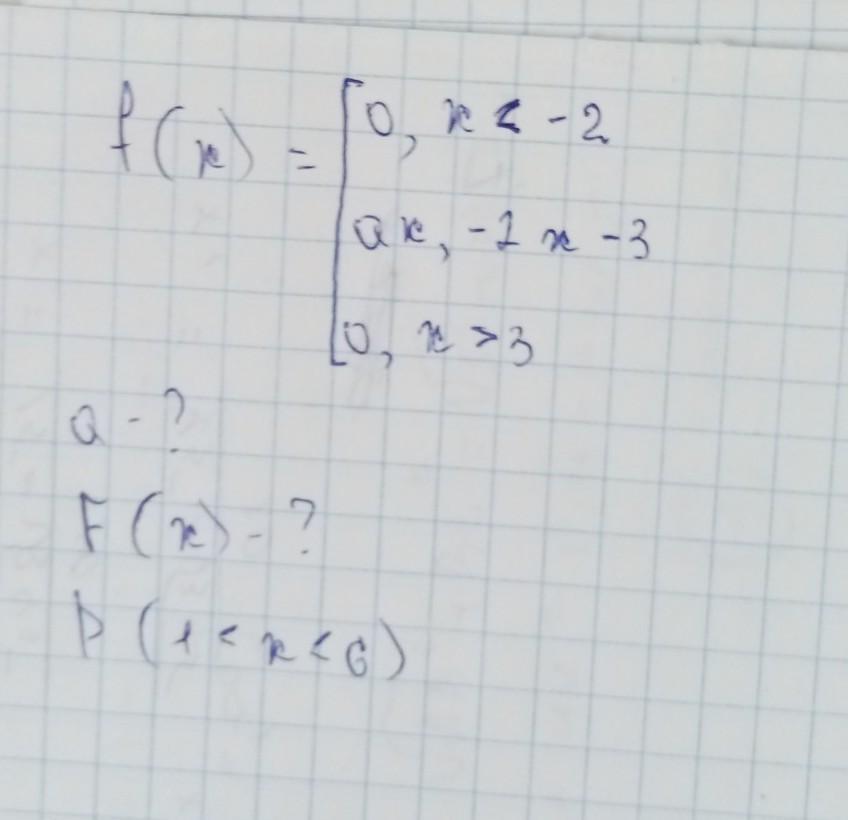 f(x) = [ 0, x < -2
ax, -1 x -3
0, x > 3
a - ?
F(x) - ?
P(1 < x < 6)